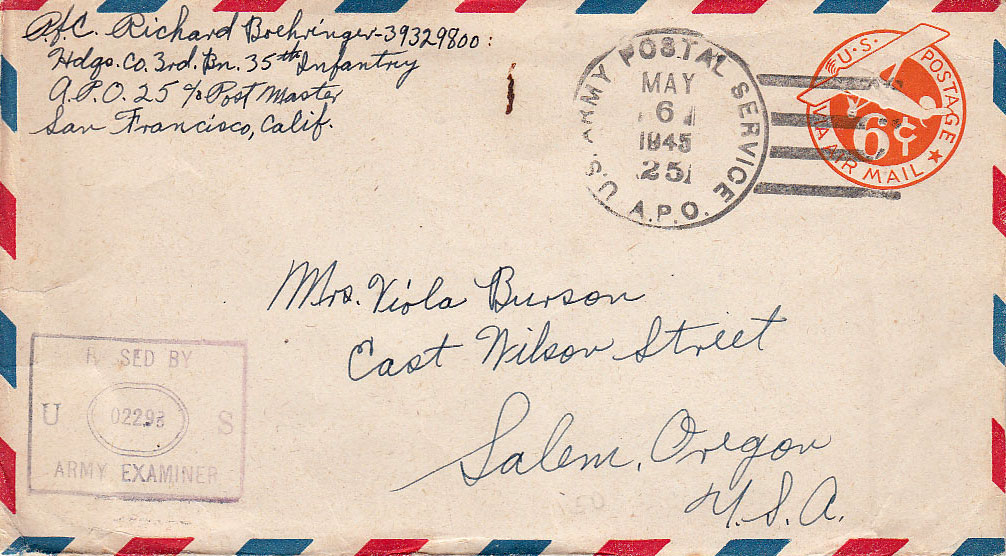 Pfc. Richard Boehringer-39329800:
Hdqs. Co. 3rd. Bn. 35th Infantry
A.P.O. 25 % Post Master
San Francisco, Calif.
U.S. ARMY POSTAL SERVICE
MAY
6
1945
25
A.P.O.
U.S. POSTAGE
6¢
VIA AIR MAIL
Mrs. Viola Burson
East Wilson Street
Salem, Oregon
U.S.A.
SED BY
U 02298 S
ARMY EXAMINER